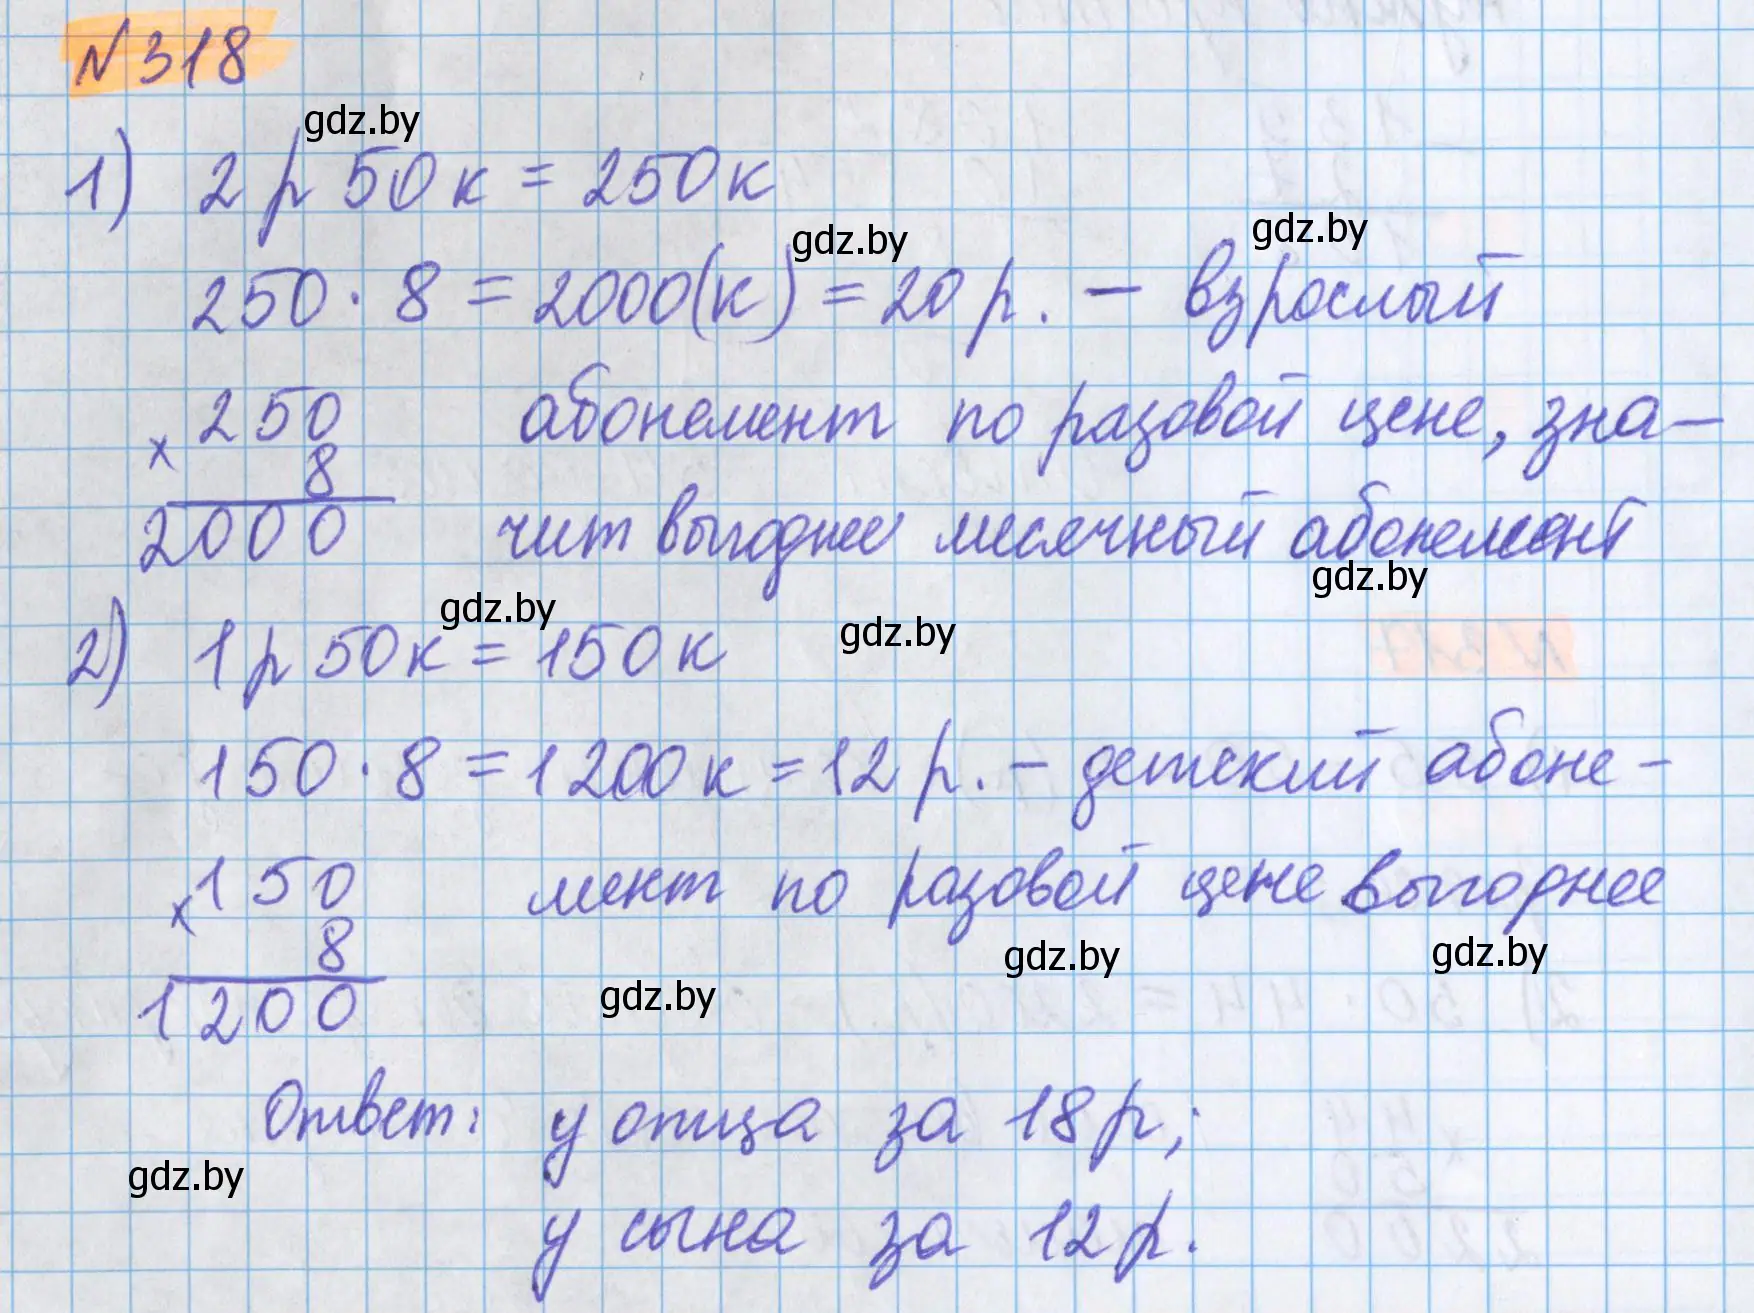 №318
gdz.by
1) 2 р 50 к = 250 к
gdz.by
gdz.by
250 · 8 = 2000(к) = 20 р. – взрослый
× 250 абонемент по разовой цене, зна–
8
2000 чит выгоднее месячный абонемент
gdz.by
gdz.by
2) 1 р 50 к = 150 к
gdz.by
150 · 8 = 1200 к = 12 р. – детский абоне–
× 150 мент по разовой цене выгоднее
8
gdz.by
gdz.by
1200
gdz.by
Ответ: у отца за 18 р;
gdz.by
у сына за 12 р.